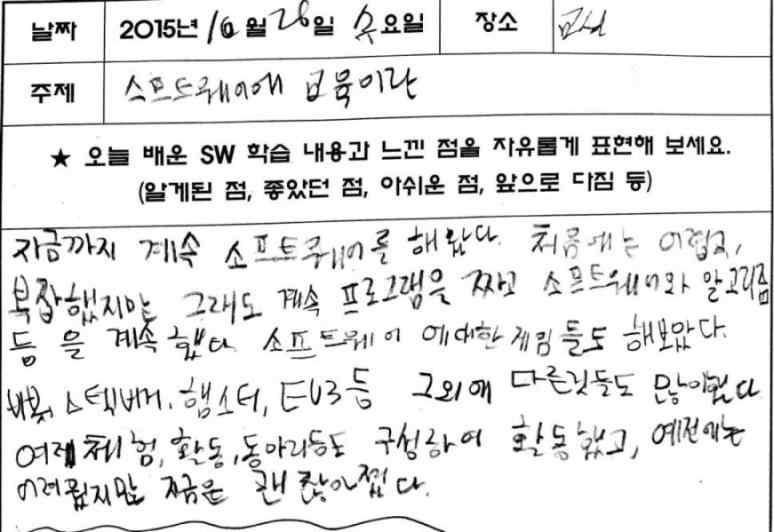 날짜 2015년 10월 28일 수요일 장소 교실
주제 소프트웨어에 교육이란
★ 오늘 배운 SW 학습 내용과 느낀 점을 자유롭게 표현해 보세요.
(알게된 점, 좋았던 점, 아쉬운 점, 앞으로 다짐 등)
지금까지 계속 소프트웨어를 해왔다. 처음에는 어렵고,
복잡했지만 그래도 계속 프로그램을 짜고 소프트웨어와 알고리즘
등을 계속했다. 소프트웨어에대한게임들도 해보았다.
스택버거, 햄스터, EV3등 그외에 다른것들도 많이했다
여러체험, 활동, 동아리등도 구성하여 활동했고, 예전에는
어려웠지만 지금은 괜찮아졌다.